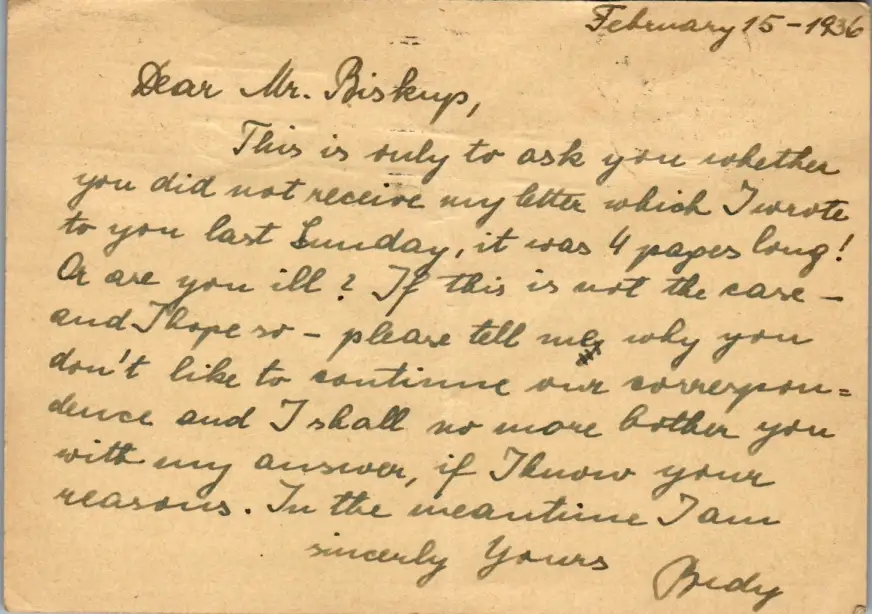 February 15 - 1936
Dear Mr. Biskup,
This is only to ask you whether
you did not receive my letter which I wrote
to you last Sunday, it was 4 pages long!
Or are you ill? If this is not the case -
and I hope so - please tell me, why you
don't like to continue our correspon=
dence and I shall no more bother you
with my answer, if I know your
reasons. In the meantime I am
sincerly Yours